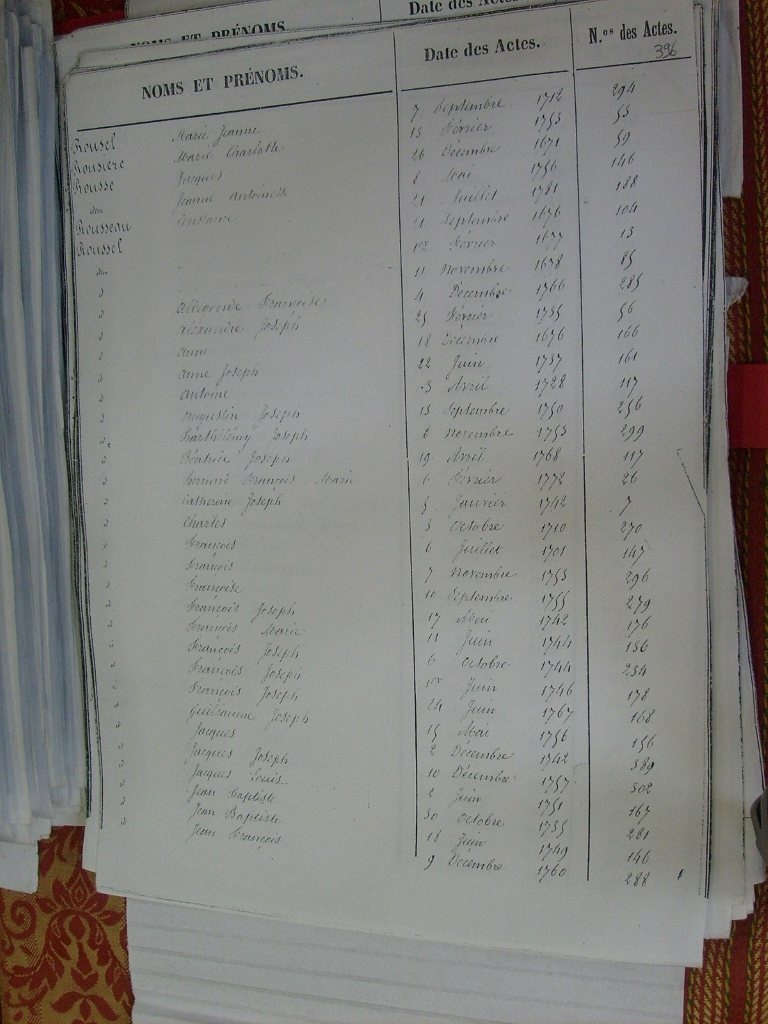 NOMS ET PRÉNOMS. Date des Actes
NOMS ET PRÉNOMS. Date des Actes. N.os des Actes.
396
Rousel Marie Jeanne 7 Septembre 1712 294
Rousiere Marie Charlotte 13 Février 1753 53
Rousse Jacques 26 Décembre 1671 59
dem Jeanne Antoinette 8 Mai 1756 146
Rousseau Constance 21 Juillet 1781 188
Roussel 4 Septembre 1676 104
dem 1er Février 1677 13
d 11 Novembre 1678 85
d Aldegonde Françoise 4 Décembre 1766 285
d Alexandre Joseph 25 Février 1735 56
d Anne 18 Décembre 1676 166
d Anne Joseph 22 Juin 1737 161
d Antoine 3 Avril 1728 117
d Augustin Joseph 13 Septembre 1750 256
d Barthélémy Joseph 8 Novembre 1753 299
d Béatrice Joseph 19 Avril 1768 117
d Bernard François Marie 6 Février 1772 26
d Catherine Joseph 5 Janvier 1742 7
d Charles 3 Octobre 1710 270
d François 6 Juillet 1701 147
d François 7 Novembre 1753 296
d Françoise 10 Septembre 1755 279
d François Joseph 17 Mai 1742 176
d François Marie 11 Juin 1744 156
d François Joseph 6 Octobre 1744 234
d François Joseph 1er Juin 1746 178
d François Joseph 24 Juin 1767 168
d Guillaume Joseph 15 Mai 1756 156
d Jacques 2 Décembre 1742 389
d Jacques Joseph 10 Décembre 1757 302
d Jacques Louis 2 Juin 1751 167
d Jean Baptiste 30 Octobre 1735 281
d Jean Baptiste 18 Juin 1749 146
d Jean François 9 Décembre 1760 288